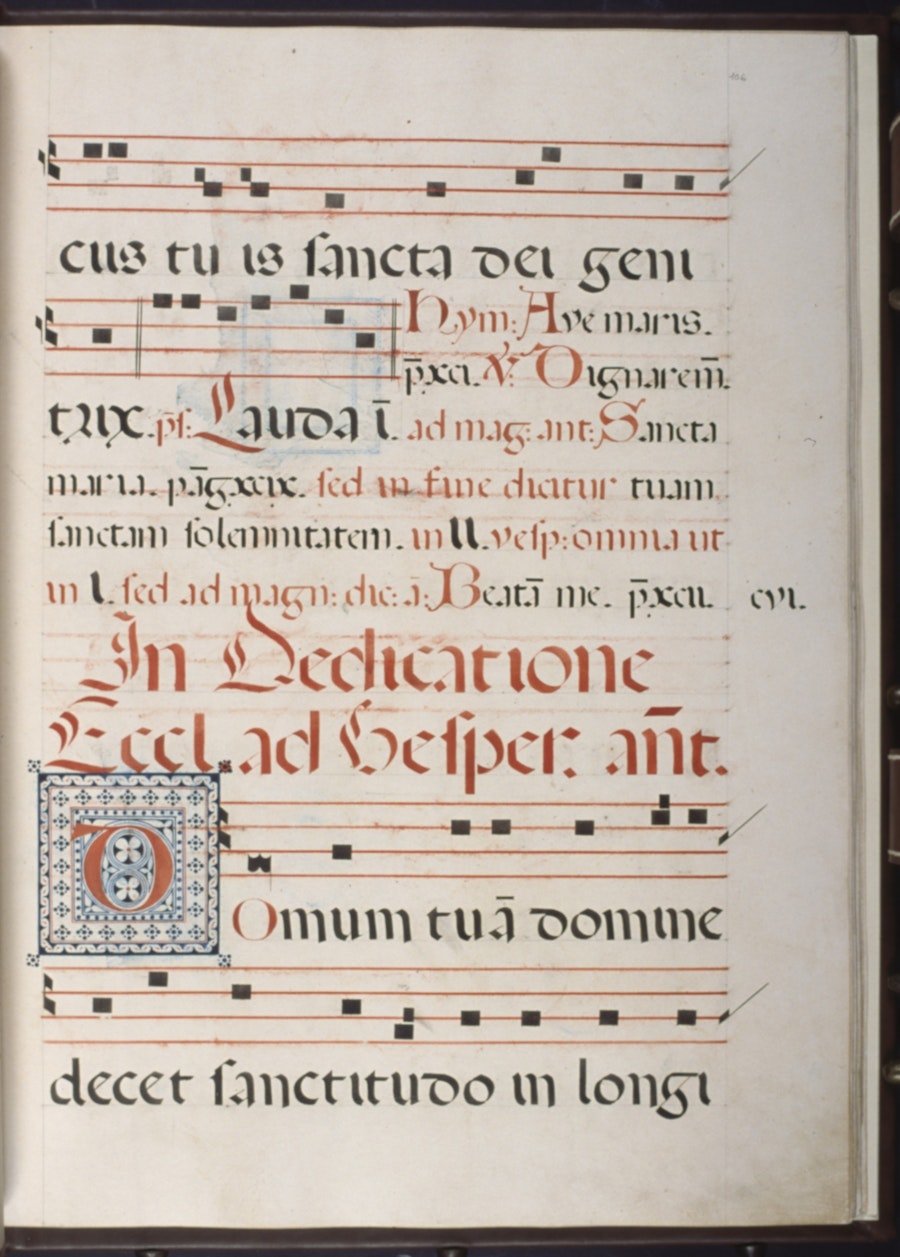 106
cus tu is sancta dei geni
Hym: Ave maris.
p̄xci. ℣: Dignarem̄.
trix. ps: Lauda ī. ad mag: ant: Sancta
maria. pāgxcix. sed in fine dicitur tuam
sanctam solemnitatem. in II. vesp: omnia ut
in I. sed ad magn: dic: ā: Beatā me. p̄xcii. cvi.
In Dedicatione
Eccl ad Vesper: añt.
DOmum tuā domine
decet sanctitudo in longi